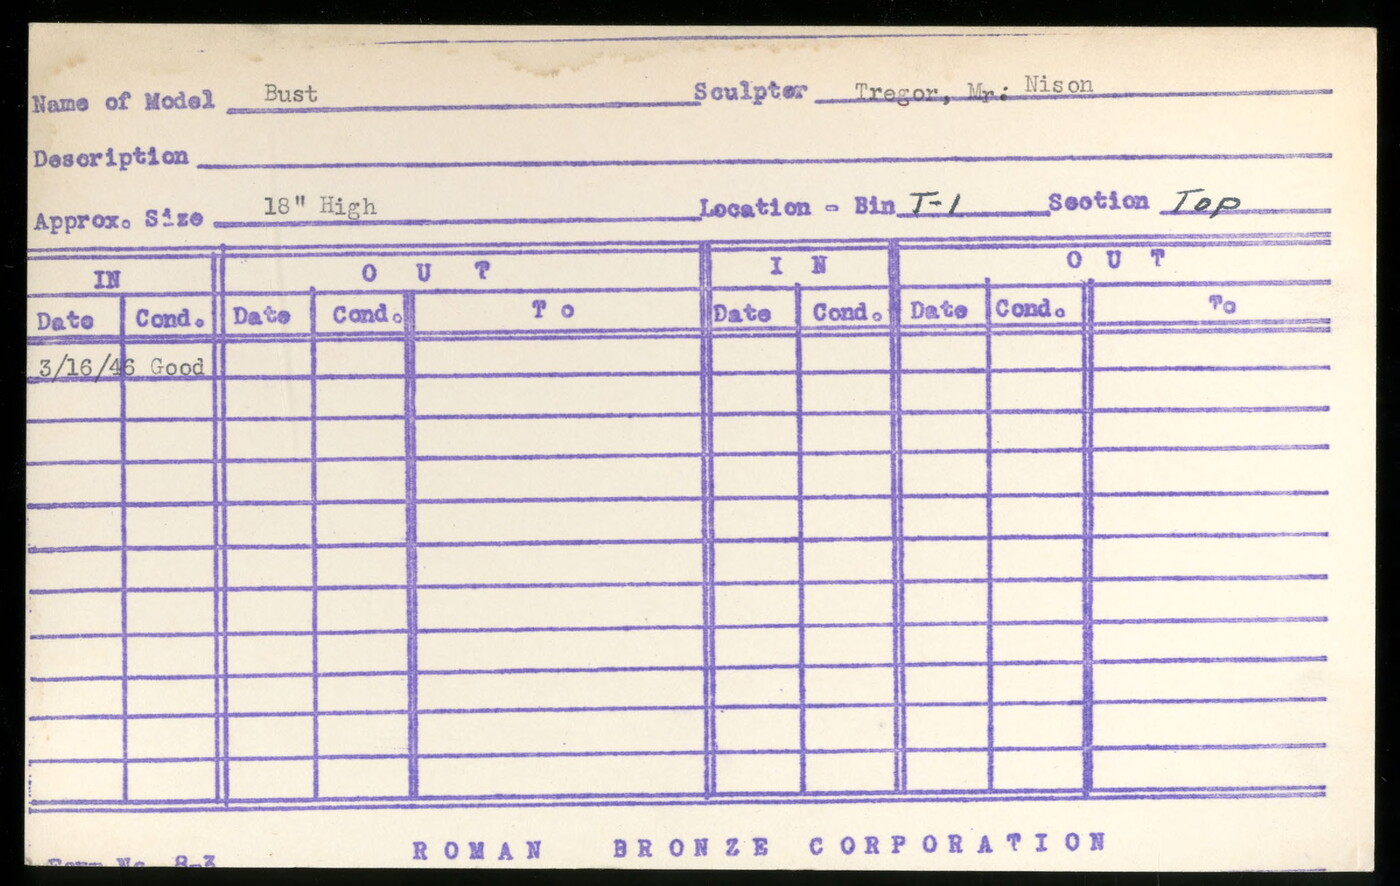 Name of Model Bust Sculptor Tregor, Mr: Nison
Description
Approx. Size 18" High Location - Bin T-1 Section Top
IN OUT IN OUT
Date Cond. Date Cond. To Date Cond. Date Cond. To
3/16/46 Good
ROMAN BRONZE CORPORATION
Form No. 8-3